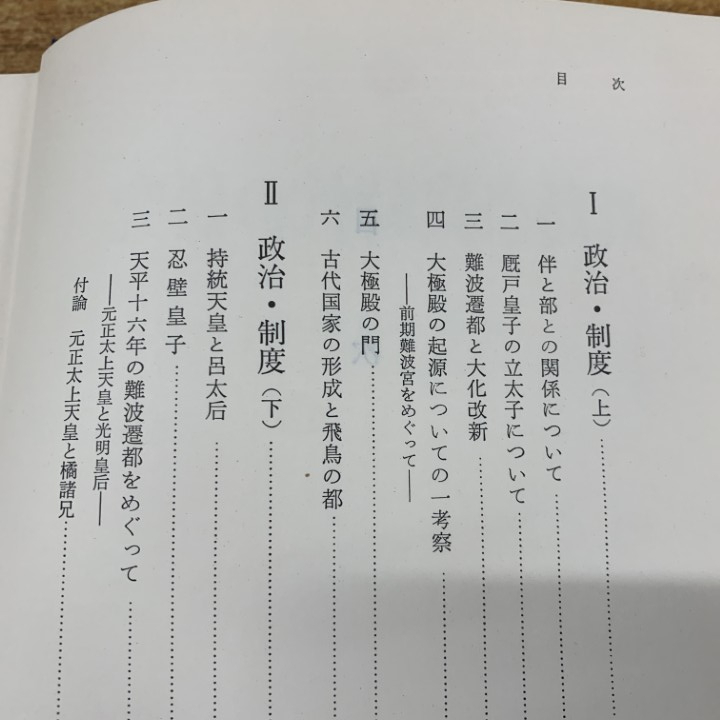 目次
Ⅰ 政治・制度(上)
一 伴と部との関係について
二 厩戸皇子の立太子について
三 難波遷都と大化改新
四 大極殿の起源についての一考察
――前期難波宮をめぐって――
五 大極殿の門
六 古代国家の形成と飛鳥の都
Ⅱ 政治・制度(下)
一 持統天皇と呂太后
二 忍壁皇子
三 天平十六年の難波遷都をめぐって
――元正太上天皇と光明皇后――
付論 元正太上天皇と橘諸兄